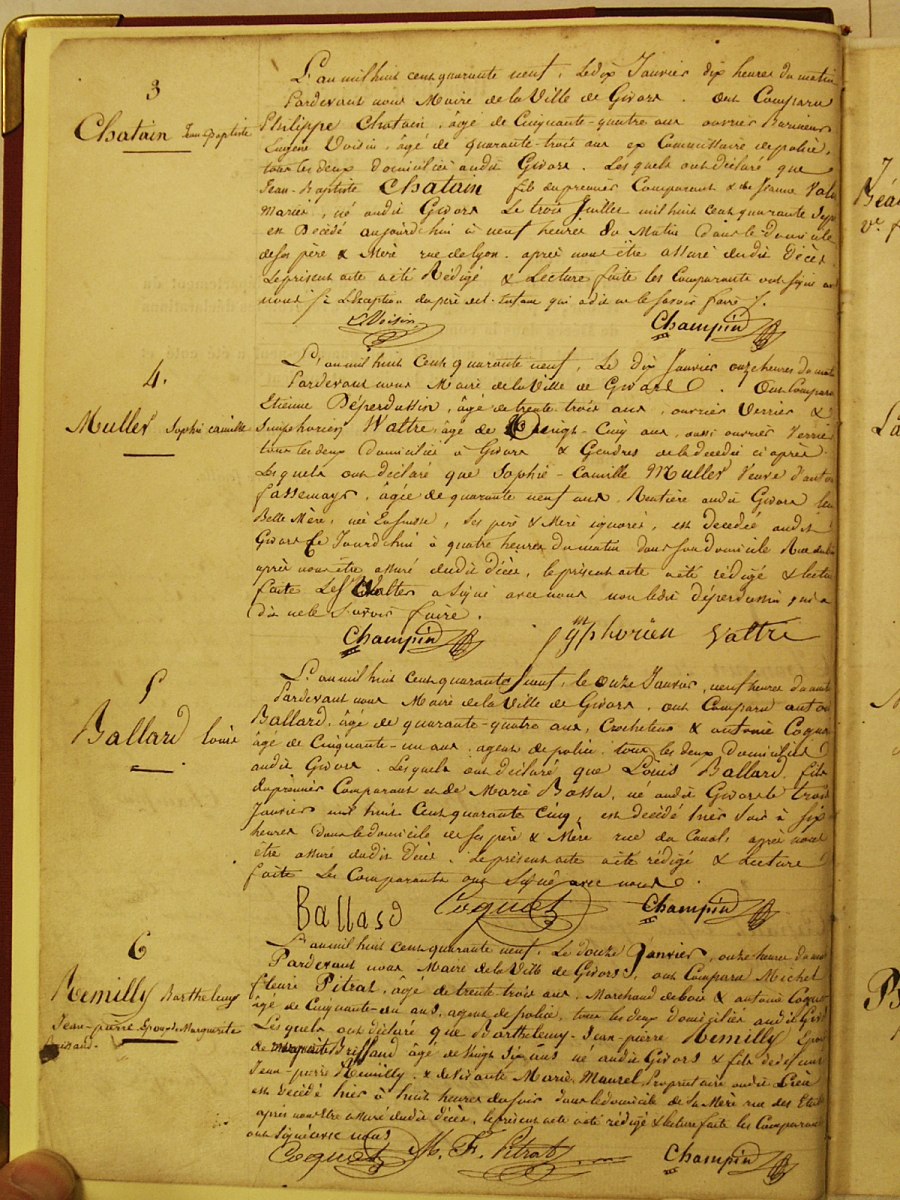 3
Chatain Jean Baptiste
L'an mil huit cent quarante neuf, le dix Janvier dix heures du matin
Pardevant nous Maire de la Ville de Givors. Ont Comparu
Philippe Chatain, âgé de Cinquante-quatre ans ouvrier
Eugène Voisin, âgé de quarante-trois ans ex Commissaire de police,
tous les deux domiciliés audit Givors. Lesquels ont déclaré que
Jean-Baptiste Chatain fils du premier Comparant & de Jeanne
Marie, né audit Givors Le trois Juillet mil huit cent quarante
est Décédé aujourd'hui à neuf heures du Matin dans le domicile
de ses père & Mère rue de Lyon. après nous être assuré dudit Décès
Le présent acte a été Rédigé & Lecture faite les Comparants ont signé
nous à L'éxception du père de l'Enfant qui a dit ne le savoir faire.
EVoisin Champin
4.
Muller Sophie camille
L'an mil huit Cent quarante neuf, Le dix Janvier onze heures du matin
Pardevant nous Maire de la Ville de Givors. Ont Comparu
Etienne Déperdussin, âgé de trente-trois ans, ouvrier Verrier &
Simphorien Waltre, âgé de Vingt-Cinq ans, aussi ouvrier Verrier
tous les deux Domiciliés à Givors & Gendres de la décédée ci après
Lesquels ont déclaré que Sophie-Camille Muller Veuve d'
âgée de quarante neuf ans, Rentière audit Givors leur
Belle Mère, née En Suisse, Ses père & Mère ignorés, est decedée audit
Givors Ce Jourd'hui à quatre heures du matin dans son domicile Rue
après nous être assuré dudit décès, le présent acte a été rédigé & lecture
faite Le Sr Walter a signé avec nous non ledit déperdussin qui a
dit ne le savoir faire.
Champin Symphorien Valtre
5
Ballard Louis
L'an mil huit cent quarante neuf, le onze Janvier, neuf heures du matin
Pardevant nous Maire de la Ville de Givors, ont Comparu
Ballard, âgé de quarante-quatre ans, Crocheteur & antoine Coquet
âgé de Cinquante-un ans, agent de police, tous les deux Domiciliés
audit Givors. Lesquels ont déclaré que Louis Ballard, fils
du premier Comparant et de Marie Bassu, né audit Givors le trois
Janvier mil huit Cent quarante Cinq, est décédé hier soir à six
heures Dans le domicile de ses père & Mère rue du Canal, après nous
être assuré dudit Décès. Le présent acte a été rédigé & Lecture
faite Les Comparants ont Signé avec nous.
Ballard Coquet Champin
6
Remilly Barthelemy
Jean-pierre Epoux de Marguerite
Brissand.
L'an mil huit cent quarante neuf, Le douze Janvier, onze heures du matin
Pardevant nous Maire de la Ville de Givors, ont Comparu Michel
fleuri Pitrat, âgé de trente-trois ans, Marchand de bois & antoine Coquet
âgé de Cinquante-un ans, agent de police, tous les deux domiciliés audit Givors
Lesquels ont déclaré que Barthelemy-Jean-pierre Remilly, Epoux
de Marguerite Brissand âgé de Vingt Six ans né audit Givors & fils de défunt
Jean-pierre Remilly, & de Vivante Marie Maurel, Propriétaire audit Lieu
est Décédé hier à huit heures du soir dans le domicile de sa Mère rue des
après nous être assuré dudit décès, le présent acte a été rédigé & lecture faite les Comparants
ont signé avec nous
Coquet M. F. Pitrat Champin
7